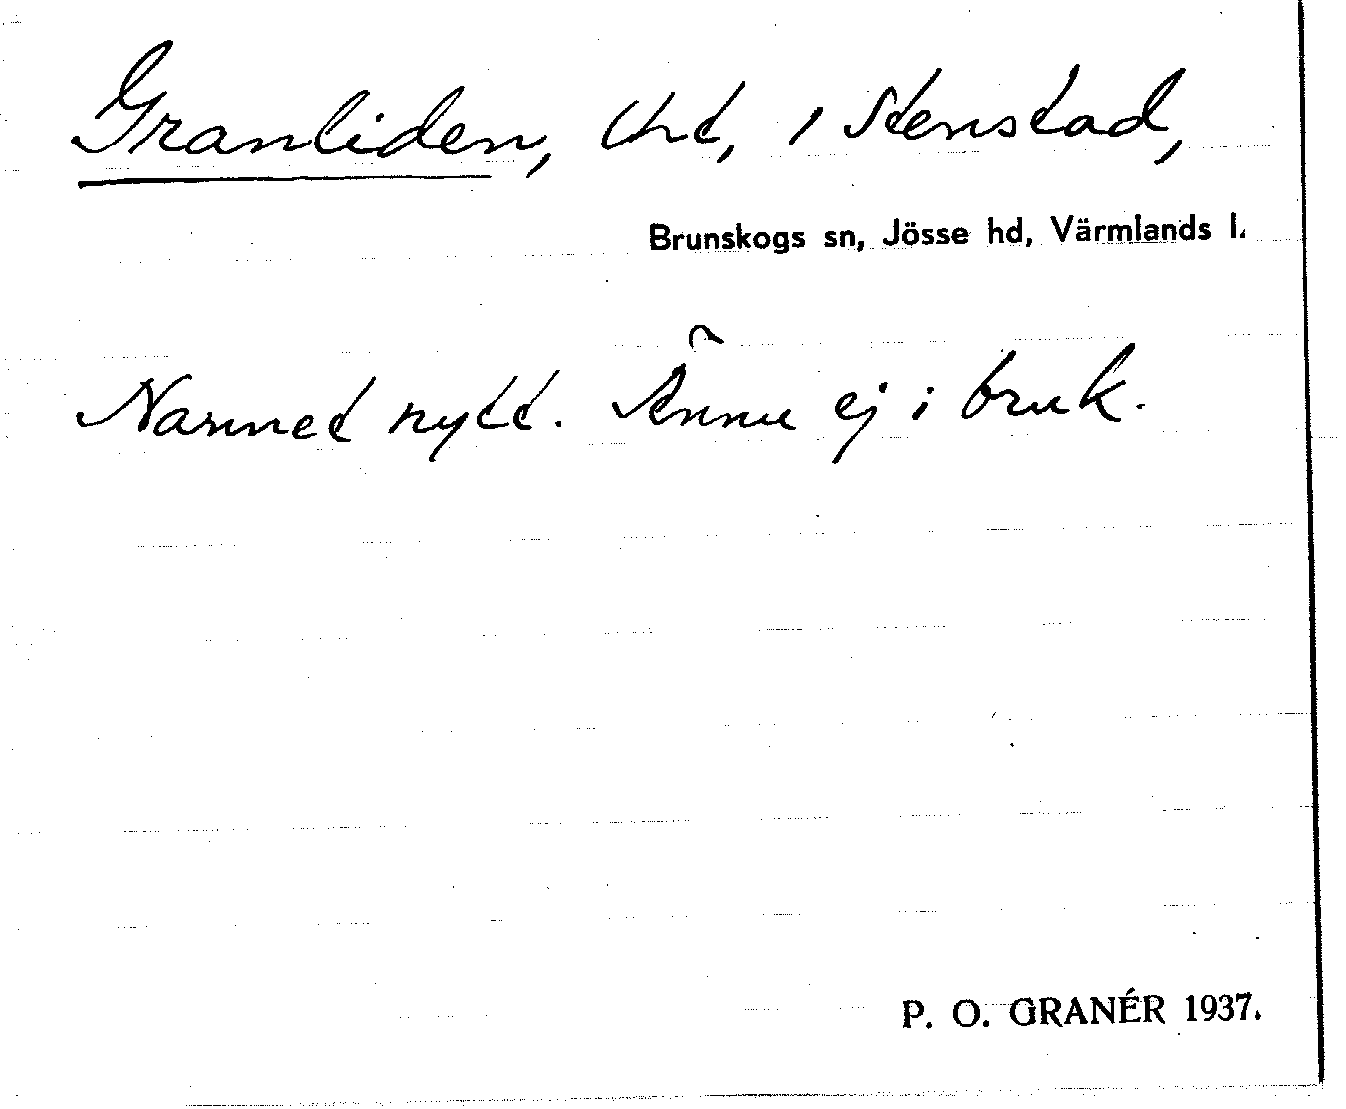 Granliden, lht, i Stenstad,
Brunskogs sn, Jösse hd, Värmlands l.
Namnet nytt. Ännu ej i bruk.
P. O. GRANÉR 1937.